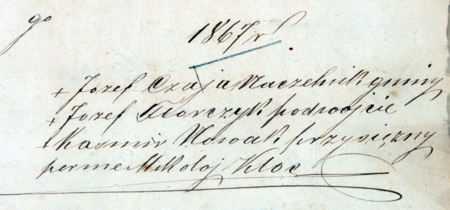 go
1867 r.
+ Jozef Czaja Naczelnik gminy
+ Jozef Tkorczyk podwojcie
+ Kazmir Nowak przysięzny
perme Mikołaj Kloc